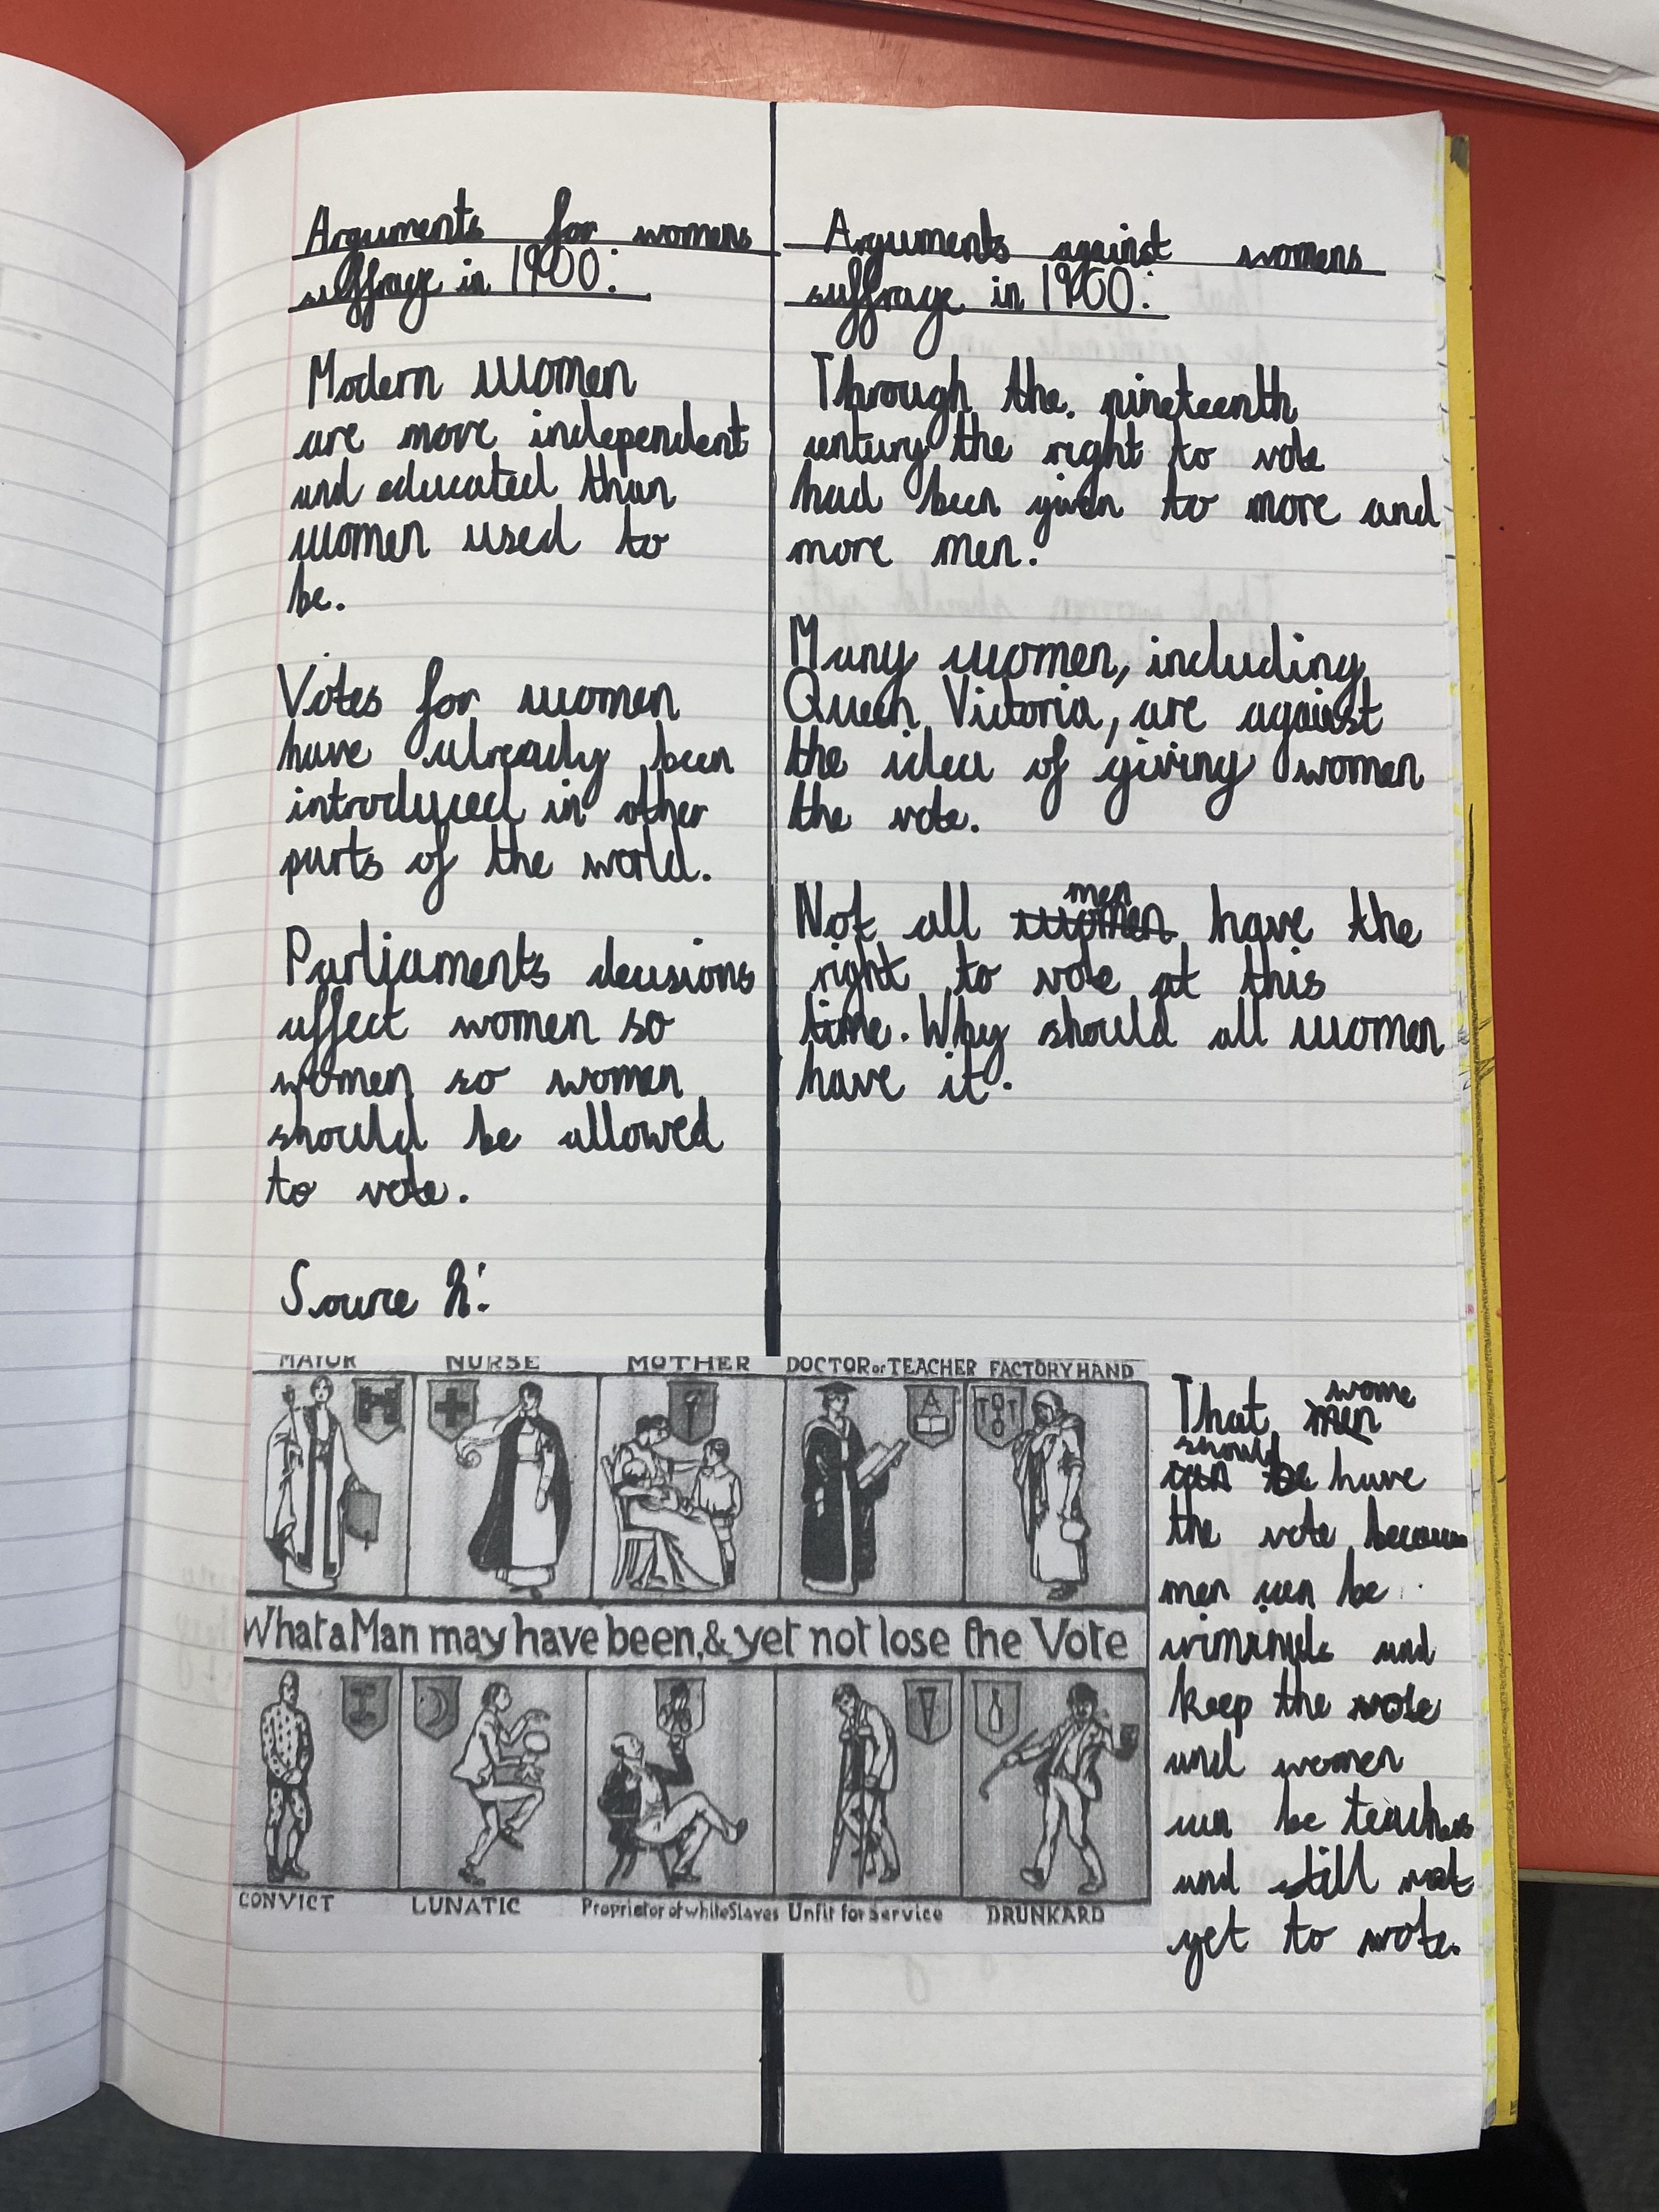 Arguments for womens
suffrage in 1900:
Modern women
are more independent
and educated than
women used to
be.
Votes for women
have already been
introduced in other
parts of the world.
Parliaments decisions
affect women so
women so women
should be allowed
to vote.
Source
Arguments against womens
suffrage in 1900:
Through the. nineteenth
century the right to vote
had been given to more and
more men.
Many women, including
Queen Victoria, are against
the idea of giving women
the vote.
Not all women men have the
right to vote at this
time. Why should all women
have it.
MAYOR NURSE MOTHER DOCTOR or TEACHER FACTORY HAND
What a Man may have been, & yet not lose the Vote
CONVICT LUNATIC Proprietor of white Slaves Unfit for Service DRUNKARD
That men wome
can be should have
the vote because
men can be
criminals and
keep the vote
and women
can be teachers
and still not
yet to vote.